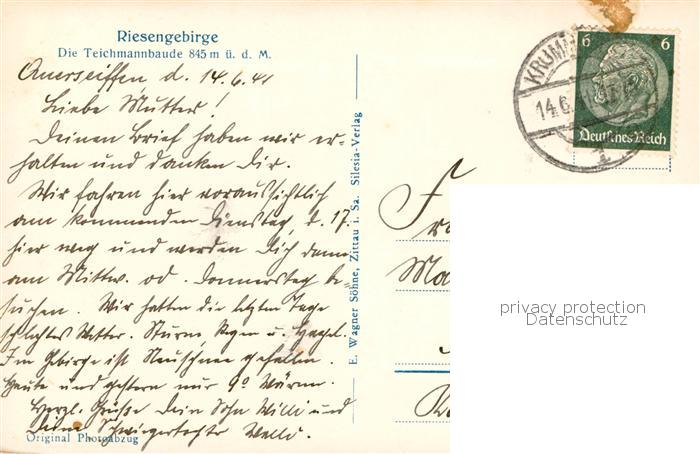 Riesengebirge
Die Teichmannbaude 845 m ü. d. M.
Querseiffen, d. 14.6.41
Liebe Mutter!
Deinen Brief haben wir er-
halten und danken Dir.
Wir fahren hier voraussichtlich
am kommenden Dienstag, d. 17.
hier weg und werden Dich dann
am Mittw. od. Donnerstag be-
suchen. Wir hatten die letzten Tage
schlechtes Wetter. Sturm, Regen u. Hagel.
Im Gebirge ist Neuschnee gefallen.
Heute und gestern nur 9° Wärme.
Herzl. Grüße Dein Sohn Willi und
Deine Schwiegertochter
Original Photoabzug
E. Wagner Söhne, Zittau i. Sa. Silesia-Verlag
KRUMM
14.6.
a
6 6
Deutsches Reich
Fr
Ma
privacy protection
Datenschutz